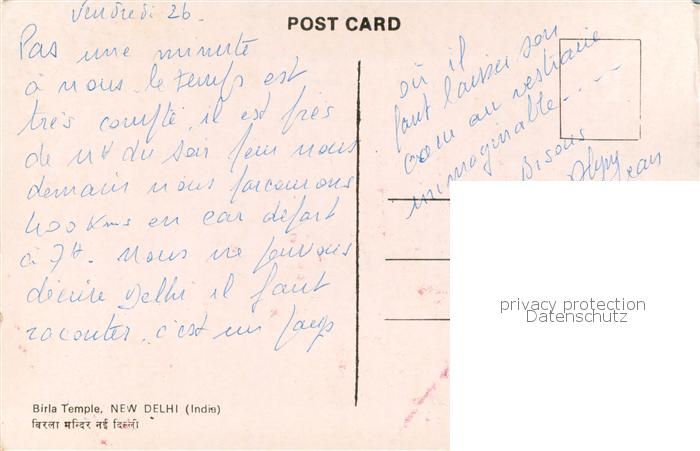 Vendredi 26.
POST CARD
Pas une minute
à nous le temps est
très compté, il est près
de 11H du soir pour nous
demain nous parcourons
400 Kms en car départ
à 7H. Nous ne pouvons
décrire Delhi il faut
raconter, c'est un pays
où il
faut laisser son
cœur au vestiaire
inimaginable....
Bisous
Jean
privacy protection
Datenschutz
Birla Temple, NEW DELHI (India)
बिरला मन्दिर नई दिल्ली